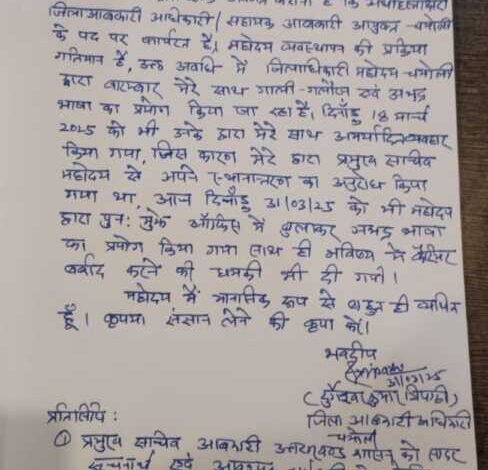 कराना है कि अधोहस्ताक्षरी
जिला आबकारी अधिकारी/ सहायक आबकारी आयुक्त -चमोली
के पद पर कार्यरत है, महोदय व्यवस्थापन की प्रक्रिया
गतिमान है, उक्त अवधि में जिलाधिकारी महोदय -चमोली
द्वारा बारम्बार मेरे साथ गाली-गलौज एवं अभद्र
भाषा का प्रयोग किया जा रहा है। दिनाँक 18 मार्च
2025 को भी उनके द्वारा मेरे साथ अमर्यादित व्यवहार
किया गया, जिस कारण मेरे द्वारा प्रमुख सचिव
महोदय से अपने स्थानान्तरण का अनुरोध किया
गया था, आज दिनाँक 31/03/25 को भी महोदय
द्वारा पुनः मुझे ऑफिस में बुलाकर अभद्र भाषा
का प्रयोग किया गया साथ ही भविष्य में कैरियर
बर्बाद करने की धमकी भी दी गयी।
महोदय मैं मानसिक रूप से बहुत ही व्यथित
हूँ। कृपया संज्ञान लेने की कृपा करें।
भवदीय
31/03/25
(दुर्गेश्वर कुमार त्रिपाठी)
जिला आबकारी अधिकारी
चमोली
प्रतिलिपि :
① प्रमुख सचिव आबकारी उत्तराखण्ड शासन को सादर
सूचनार्थ एवं आवश्यक